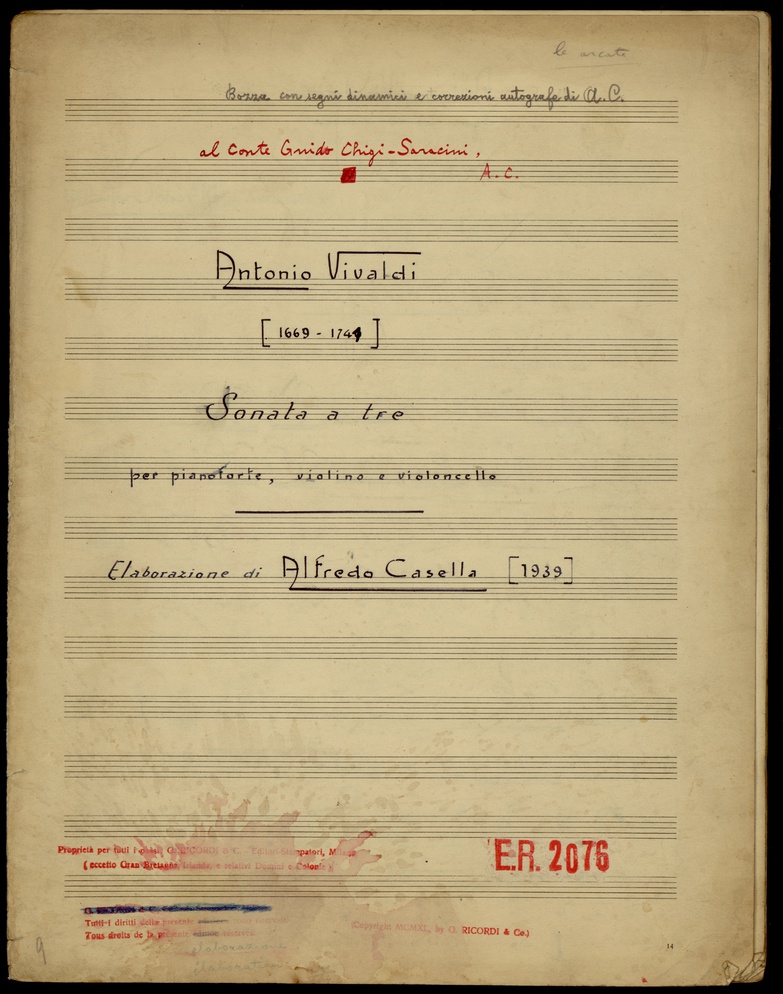 le arcate
Bozza con segni dinamici e correzioni autografe di A. C.
al Conte Guido Chigi-Saracini,
A. C.
Antonio Vivaldi
[1669 - 1741]
Sonata a tre
per pianoforte, violino e violoncello
Elaborazione di Alfredo Casella [1939]
Proprietà per tutti i paesi G. RICORDI & C. - Editori-Stampatori, Milano
(eccetto Gran Bretagna, Irlanda, e relativi Domini e Colonie)
E.R. 2076
Tutti i diritti della presente
Tous droits de la présente
(Copyright MCMXL, by G. RICORDI & Co.)
elaborazione
9
14